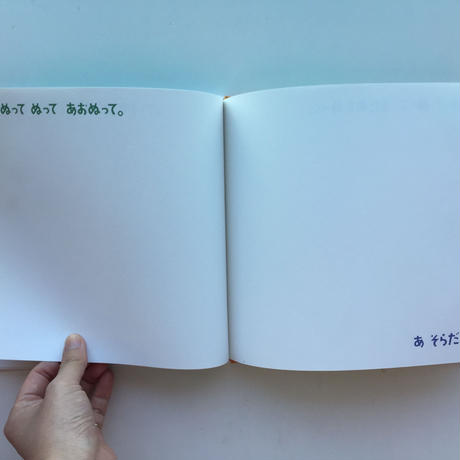 ぬって ぬって あおぬって。
あ そらだ